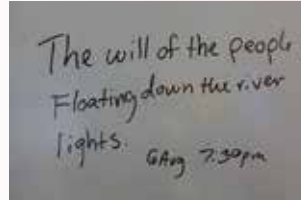 The will of the people
Floating down the river
lights.
6Aug 7:30pm